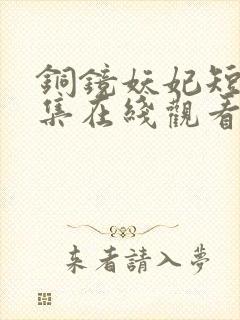 銅鏡妖妃短
集在綫觀看
来者請入夢